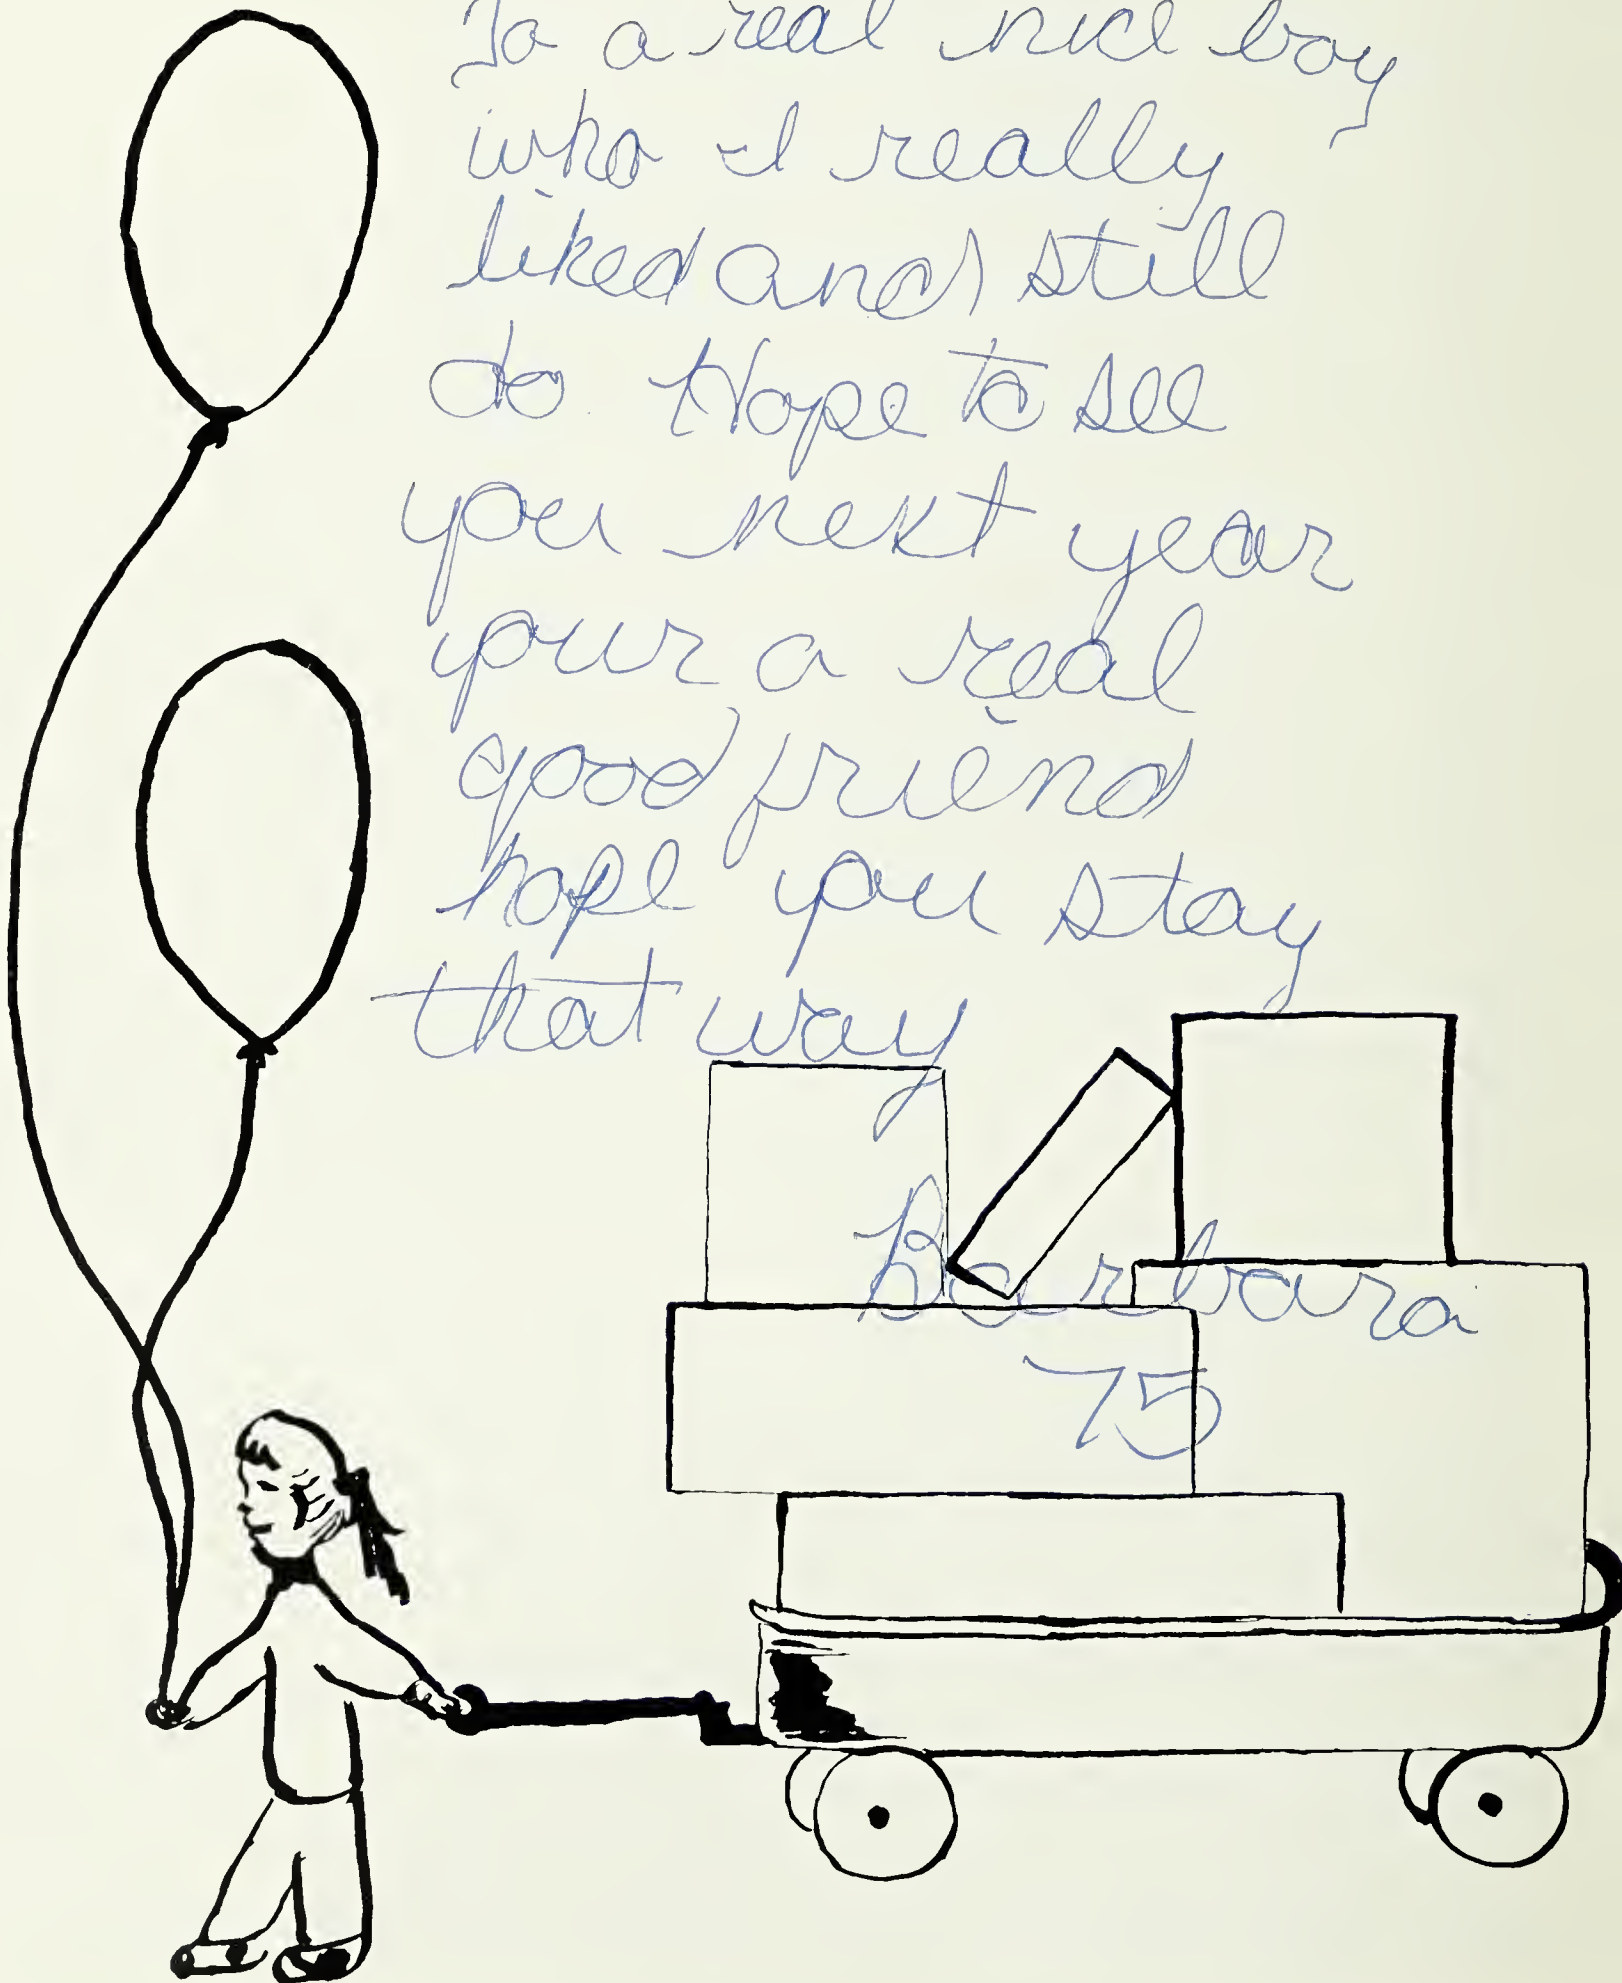 To a real nice boy
who I really
liked and still
do Hope to see
you next year
your a real
good friend
hope you stay
that way
Barbara
75